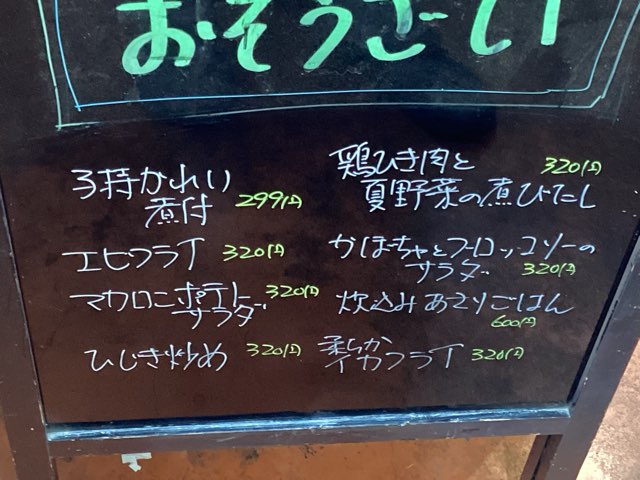 おそうざい
3持かれい
煮付 299円
エビフライ 320円
マカロニポテト 320円
サラダ
ひじき炒め 320円
鶏ひき肉と 320円
夏野菜の煮びたし
かぼちゃとブロッコリーの
サラダ 320円
炊込みあさりごはん
600円
柔らか
イカフライ 320円